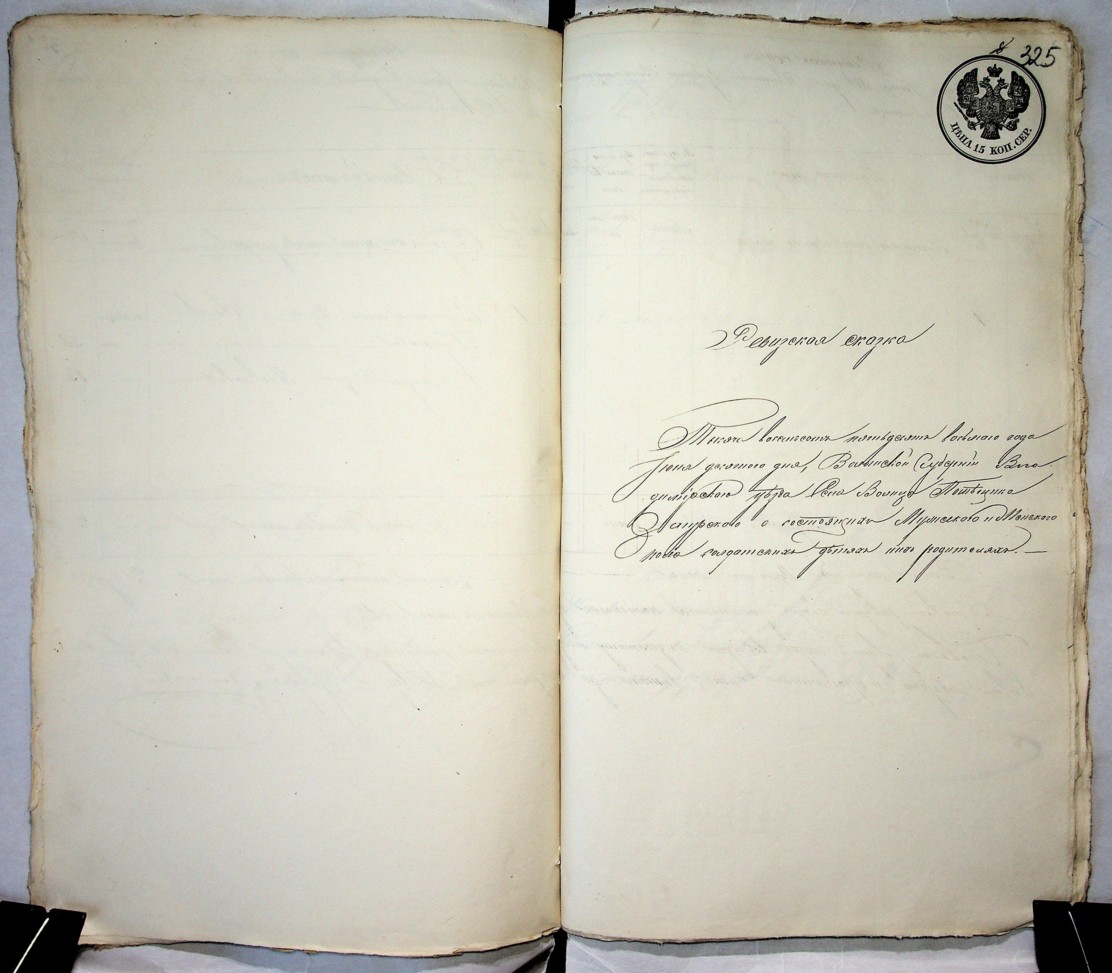 325
ЦѢНА 15 КОП. СЕР.
Ревизская сказка
Тысяча восемьсотъ пятьдесятъ восьмаго года
Іюня десятого дня, Волынской Губерніи Вла
димірскаго уѣзда Села Воинцо Помѣщика
о состоящихъ Мужескаго и Женского
пола солдатскихъ дѣтяхъ ихъ родителяхъ. —